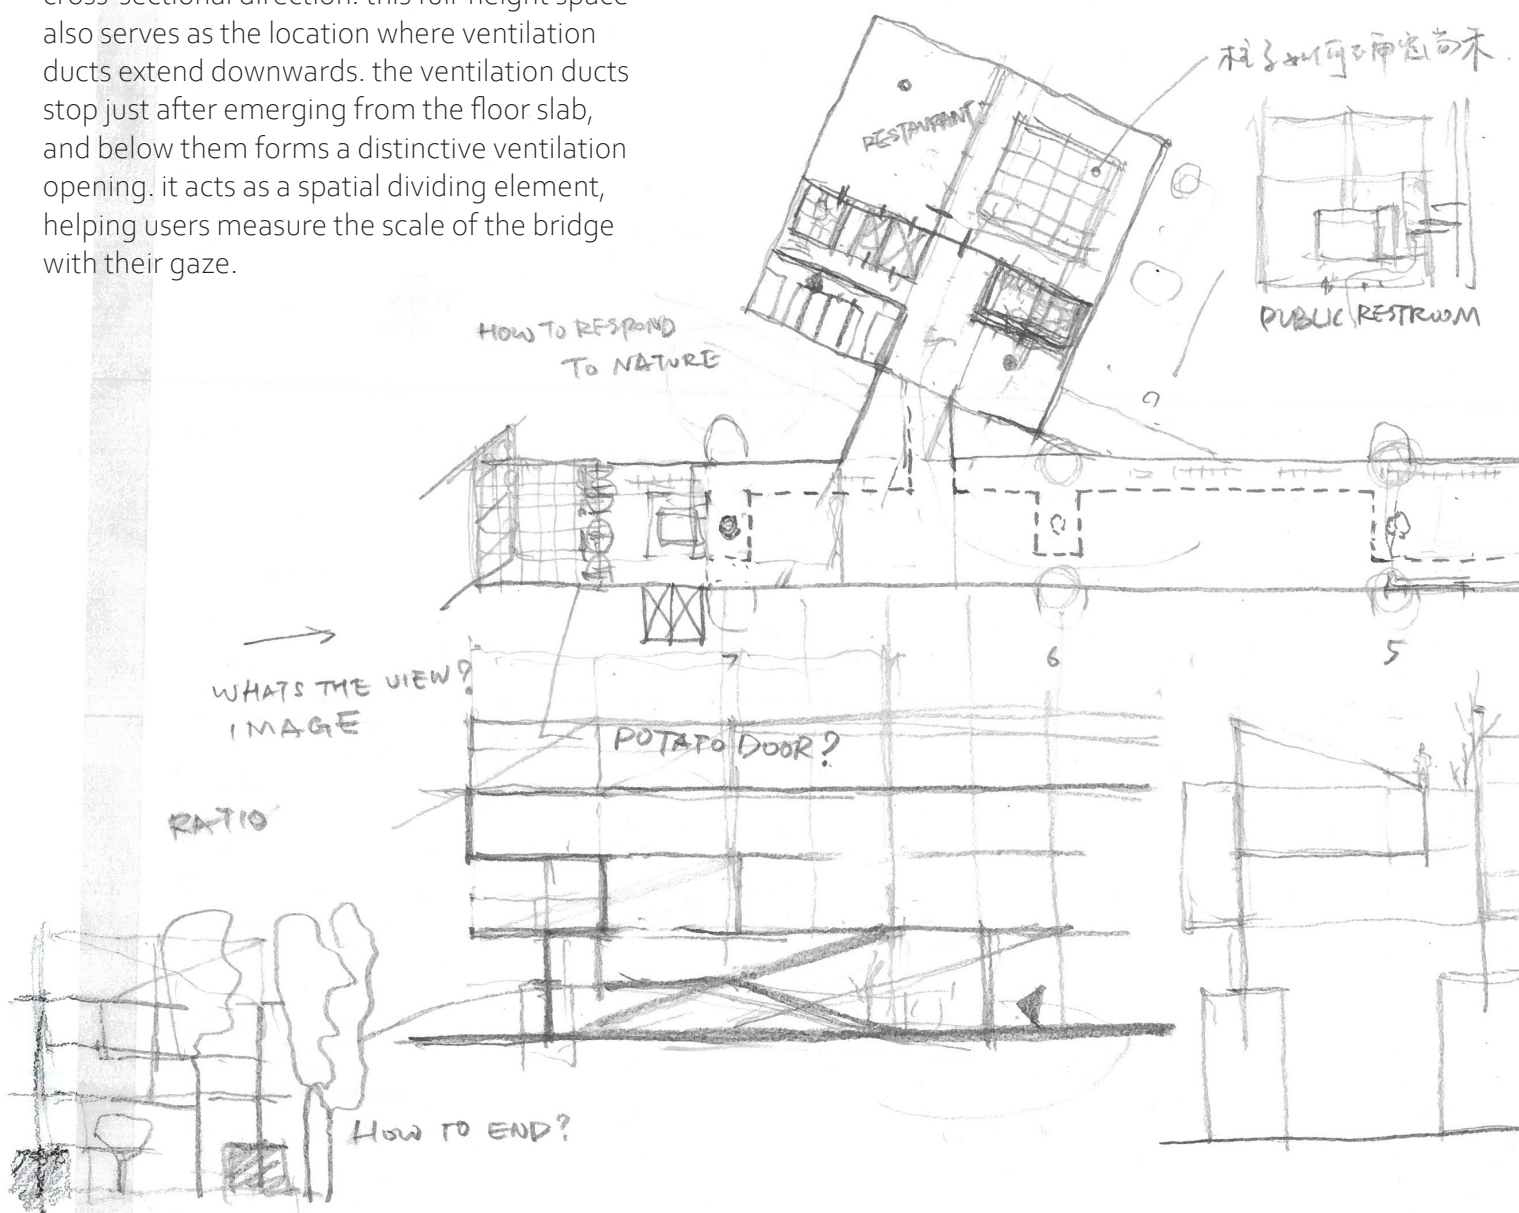 cross-sectional direction. this full-height space
also serves as the location where ventilation
ducts extend downwards. the ventilation ducts
stop just after emerging from the floor slab,
and below them forms a distinctive ventilation
opening. it acts as a spatial dividing element,
helping users measure the scale of the bridge
with their gaze.
柱子如何
RESTAURANT
PUBLIC RESTROOM
HOW TO RESPOND
TO NATURE
7
6
5
WHATS THE VIEW?
IMAGE
POTATO DOOR?
RATIO
HOW TO END?